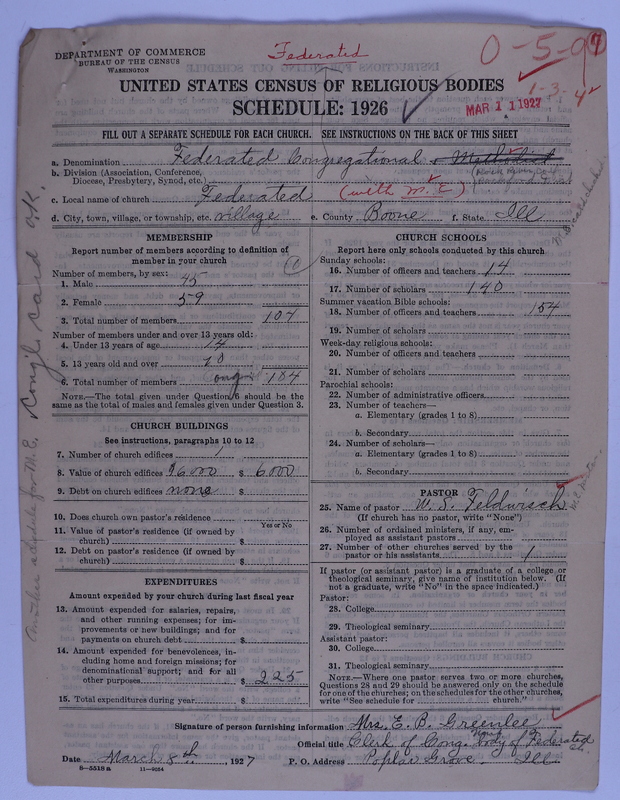 Federated
0-5-9
DEPARTMENT OF COMMERCE
BUREAU OF THE CENSUS
WASHINGTON
1-3-4
UNITED STATES CENSUS OF RELIGIOUS BODIES
SCHEDULE: 1926
MAR 11 1927
FILL OUT A SEPARATE SCHEDULE FOR EACH CHURCH. SEE INSTRUCTIONS ON THE BACK OF THIS SHEET
a. Denomination Federated Congregational & Methodist
b. Division (Association, Conference,
Diocese, Presbytery, Synod, etc.) Rock River
c. Local name of church Federated (with M.E.)
d. City, town, village, or township, etc. village e. County Boone f. State Ill
MEMBERSHIP
Report number of members according to definition of
member in your church
Number of members, by sex:
1. Male 45
2. Female 59
3. Total number of members 107
Number of members under and over 13 years old:
4. Under 13 years of age 14
5. 13 years old and over
6. Total number of members 184
NOTE.—The total given under Question 6 should be the
same as the total of males and females given under Question 3.
CHURCH BUILDINGS
See instructions, paragraphs 10 to 12
7. Number of church edifices 1
8. Value of church edifices $6000 $ 6000
9. Debt on church edifices none $
10. Does church own pastor's residence
Yes or No
11. Value of pastor's residence (if owned by
church) $
12. Debt on pastor's residence (if owned by
church) $
EXPENDITURES
Amount expended by your church during last fiscal year
13. Amount expended for salaries, repairs,
and other running expenses; for im-
provements or new buildings; and for
payments on church debt $
14. Amount expended for benevolences, in-
cluding home and foreign missions; for
denominational support; and for all
other purposes $ 225
15. Total expenditures during year $
CHURCH SCHOOLS
Report here only schools conducted by this church
Sunday schools:
16. Number of officers and teachers 14
17. Number of scholars 140
Summer vacation Bible schools:
18. Number of officers and teachers 154
19. Number of scholars
Week-day religious schools:
20. Number of officers and teachers
21. Number of scholars
Parochial schools:
22. Number of administrative officers
23. Number of teachers—
a. Elementary (grades 1 to 8)
b. Secondary
24. Number of scholars—
a. Elementary (grades 1 to 8)
b. Secondary
PASTOR
25. Name of pastor W. S. Feldwisch
(If church has no pastor, write "None")
26. Number of ordained ministers, if any, em-
ployed as assistant pastors
27. Number of other churches served by the
pastor or his assistants 1
If pastor (or assistant pastor) is a graduate of a college or
theological seminary, give name of institution below. (If
not a graduate, write "No" in the space indicated.)
Pastor:
28. College
29. Theological seminary
Assistant pastor:
30. College
31. Theological seminary
NOTE.—Where one pastor serves two or more churches,
Questions 28 and 29 should be answered only on the schedule
for one of the churches; on the schedules for the other churches,
write "See schedule for church."
Signature of person furnishing information Mrs. E. B. Greenlee
Official title Clerk of Cong. body of Federated
Date March 8th, 1927 P. O. Address Poplar Grove. Ill
8-5518a 11-9264
Another schedule for M.E. Cong'l card ok.
M.E. pastor